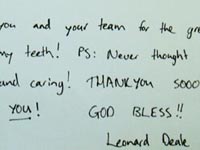 you and your team for the gre
my teeth! PS: Never thought
and caring! THANKYOU SOOO
YOU! GOD BLESS!!
Leonard Deale